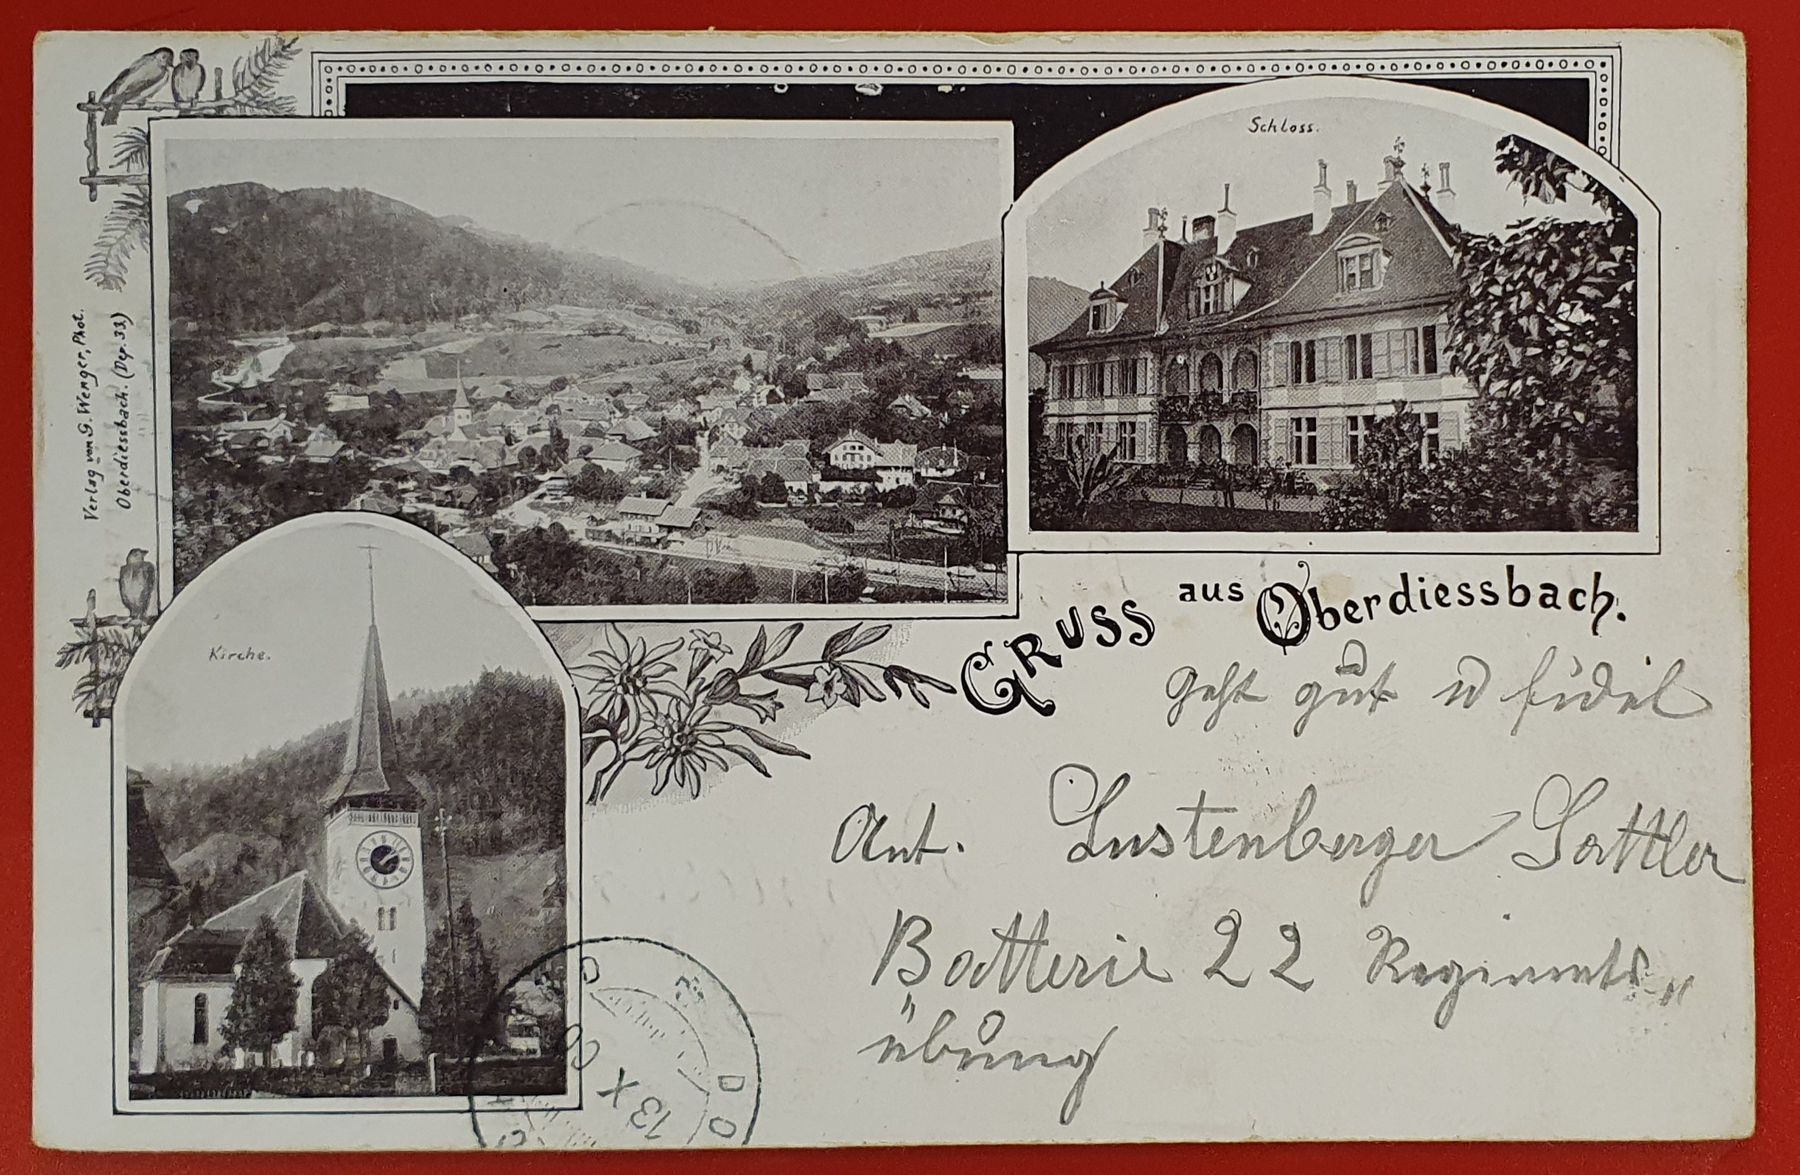 Verlag von G. Wenger, Phot.
Oberdiessbach. (Dep. 33)
Schloss.
Kirche.
Gruss aus Oberdiessbach.
geht gut u fidel
Ant. Lustenberger Sattler
Batterie 22 Regiments„
übung
13 X